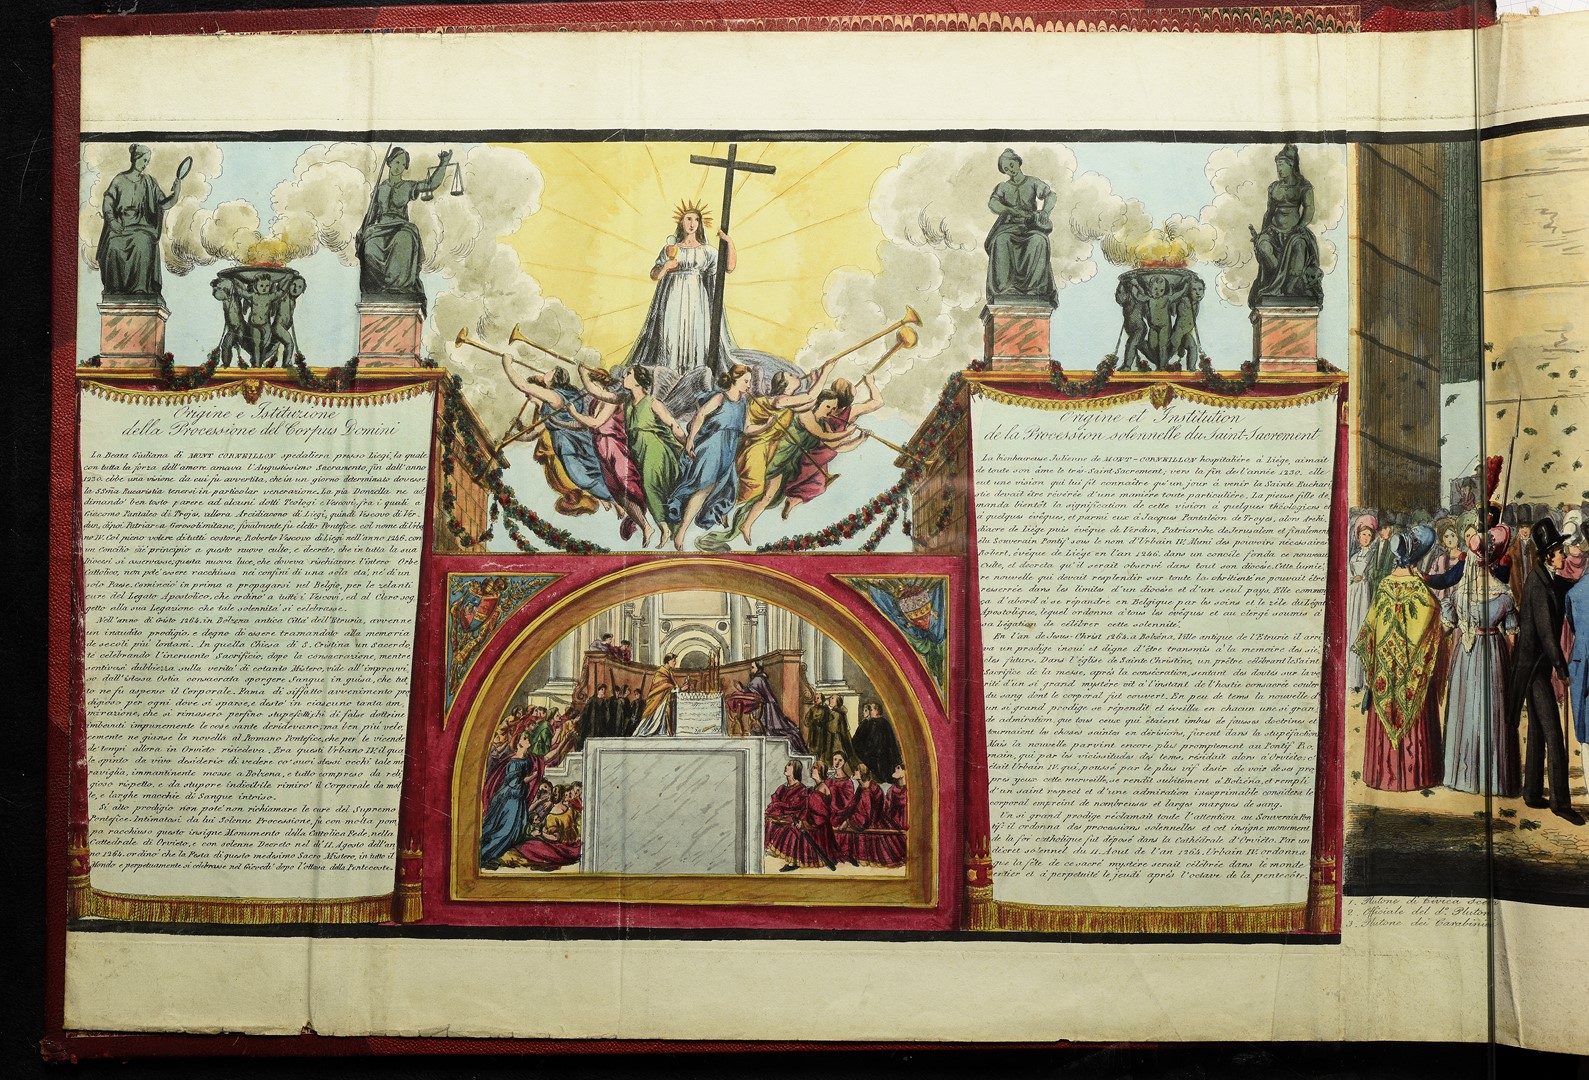 Origine e Istituzione
della Processione del Corpus Domini
La Beata Giuliana di MONT CORNEILLON spedaliera presso Liegi, la quale
con tutta la forza dell'amore amava l'Augustissimo Sacramento, fin dall'anno
1230. ebbe una visione da cui fu avvertita, che in un giorno determinato dovesse
la SSma Eucaristia tenersi in particolar venerazione. La pia Donzella ne ad
dimandò ben tosto parere ad alcuni dotti Teologi e Vescovi, fra i quali a
Giacomo Pantaleo di Troja, allora Arcidiacono di Liegi, quindi Vescovo di Ver-
dun, dipoi Patriarca Gerosolimitano, finalmente fu eletto Pontefice col nome di Urba
no IV. Col pieno volere di tutti costoro, Roberto Vescovo di Liegi nell'anno 1246. con
un Concilio diè principio a questo nuovo culto, e decretò, che in tutta la sua
Diocesi si osservasse, questa nuova luce, che doveva rischiarare l'intero Orbe
Cattolico, non potè essere racchiusa nei confini di una sola età, nè di un
solo Paese. Cominciò in prima a propagarsi nel Belgio, per le zelanti
cure del Legato Apostolico, che ordinò a tutti i Vescovi, ed al Clero sog
getto alla sua Legazione che tale solennità si celebrasse.
Nell'anno di Cristo 1264. in Bolzena antica Città dell'Etruria, avvenne
un inaudito prodigio, e degno di essere tramandato alla memoria
de secoli piu' lontani. In quella Chiesa di S. Cristina un Sacerdo_
te celebrando l'incruento Sacrificio, dopo la consacrazione, mentre
sentivasi dubbiezza sulla verità di cotanto Mistero, vide all'improvvi_
so dall'istessa Ostia consacrata sporgere Sangue in guisa, che tut
to ne fu asperso il Corporale. Fama di siffatto avvenimento pro
digioso per ogni dove si sparse, e destò in ciascuno tanta am_
mirazione, che si rimasero perfino stupefatti chi di false dottrine
imbevuti impunemente le cose sante deridevano, ma ben più velo
cemente ne giunse la novella al Romano Pontefice, che per le vicende
de' tempi allora in Orvieto risiedeva. Era questi Urbano IV. il qua
le spinto da vivo desiderio di vedere co' suoi stessi occhi tale me
raviglia, immantinente mosse a Bolzena, e tutto compreso da reli
gioso rispetto, e da stupore indicibile rimirò il Corporale da mol
te, e larghe macchie di Sangue intriso.
Sì alto prodigio non potè non richiamare le cure del Supremo
Pontefice. Intimatasi da lui Solenne Processione, fu con molta pom
pa racchiuso questo insigne Monumento della Cattolica Fede, nella
Cattedrale di Orvieto, e con solenne Decreto nel dì 11. Agosto dell'an
no 1264. ordinò che la Festa di questo medesimo Sacro Mistero, in tutto il
Mondo e perpetuamente si celebrasse nel Giovedì dopo l'Ottava della Pentecoste.
Origine et Institution
de la Procession solennelle du Saint-Sacrement
La bienheureuse Julienne de MONT-CORNEILLON hospitalière à Liège, aimait
de toute son âme le très-Saint-Sacrement; vers la fin de l'année 1230. elle
eut une vision qui lui fit connaître qu'un jour à venir la Sainte Euchari
stie devait être révérée d'une manière toute particulière. La pieuse fille de
manda bientôt la signification de cette vision à quelques théologiens et
à quelques évêques, et parmi eux à Jacques Pantaléon de Troyes, alors Archi_
diacre de Liège, puis évêque de Verdun, Patriarche de Jerusalem et finalement
élu Souverain Pontif sous le nom d'Urbain IV. Muni des pouvoirs nécessaires
Robert, évêque de Liège en l'an 1246. dans un concile fonda ce nouveau
Culte, et décreta qu'il serait observé dans tout son diocèse. Cette lumiè_
re nouvelle qui devait resplendir sur toute la chrétienté ne pouvait être
resserrée dans les limites d'un diocèse et d'un seul pays. Elle commen
ça d'abord à se répandre en Belgique par les soins et le zèle du Légat
Apostolique, lequel ordonna à tous les évêques et au clergé soumis à
sa Légation de célébrer cette solennité.
En l'an de Jesus-Christ 1264. a Bolzèna, Ville antique de l'Etrurie il arri
va un prodige inoui et digne d'être transmis à la memoire des siè_
cles futurs. Dans l'église de Sainte Christine, un prêtre célébrant le Saint
Sacrifice de la messe, après la consécration, sentant des doutes sur la ve
rité d'un si grand mystère vit à l'instant de l'hostie consacrée couler
du sang dont le corporal fut couvert. En peu de tems la nouvelle d'
un si grand prodige se répendit et éveilla en chacun une si gran_
de admiration que tous ceux qui étaient imbus de fausses doctrines et
tournaient les choses saintes en dérisions, furent dans la stupéfaction
Mais la nouvelle parvint encore plus promptement au Pontif Ro_
main, qui par les vicissitudes des tems, résidait alors à Orvièto; c'
était Urbain IV. qui poussé par le plus vif désir de voir de ses pro_
pres yeux cette merveille, se rendit subitement à Bolzèna, et rempli
d'un saint respect et d'une admiration inexprimable considèra le
corporal empreint de nombreuses et larges marques de sang.
Un si grand prodige réclamait toute l'attention du Souverain Pon_
tif: il ordonna des processions solennelles et cet insigne monument
de la foi catholique fut déposé dans la Cathédrale d'Orvièto. Par un
décret solennel du 11. Aout de l'an 1264. Urbain IV. ordonna
que la fête de ce sacré mystère serait célébrée dans le monde
entier et à perpetuité le jeudi après l'octave de la pentecôte.
1. Plutone di Civica Sce
2. Officiale del d.º Pluton
3. Plutone dei Carabinie